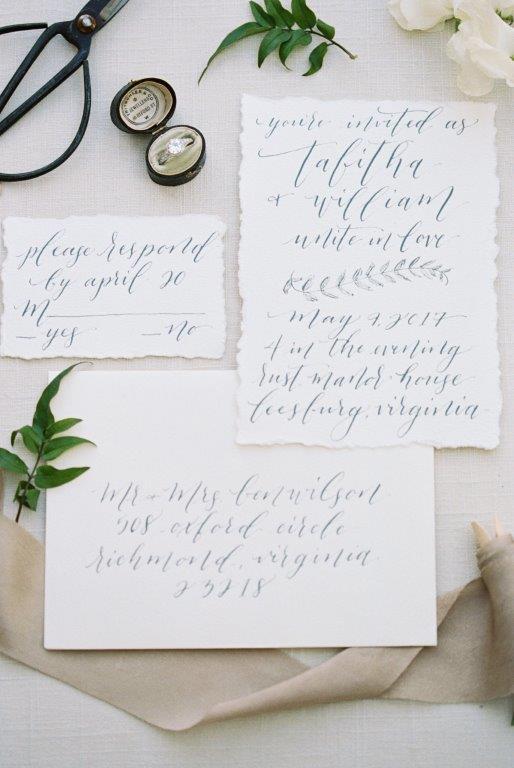 you're invited as
tabitha
+ william
unite in love
may 9, 2017
4 in the evening
rust manor house
leesburg, virginia
please respond
by april 20
M
yes no
mr + mrs ben wilson
908 oxford circle
richmond, virginia
23218